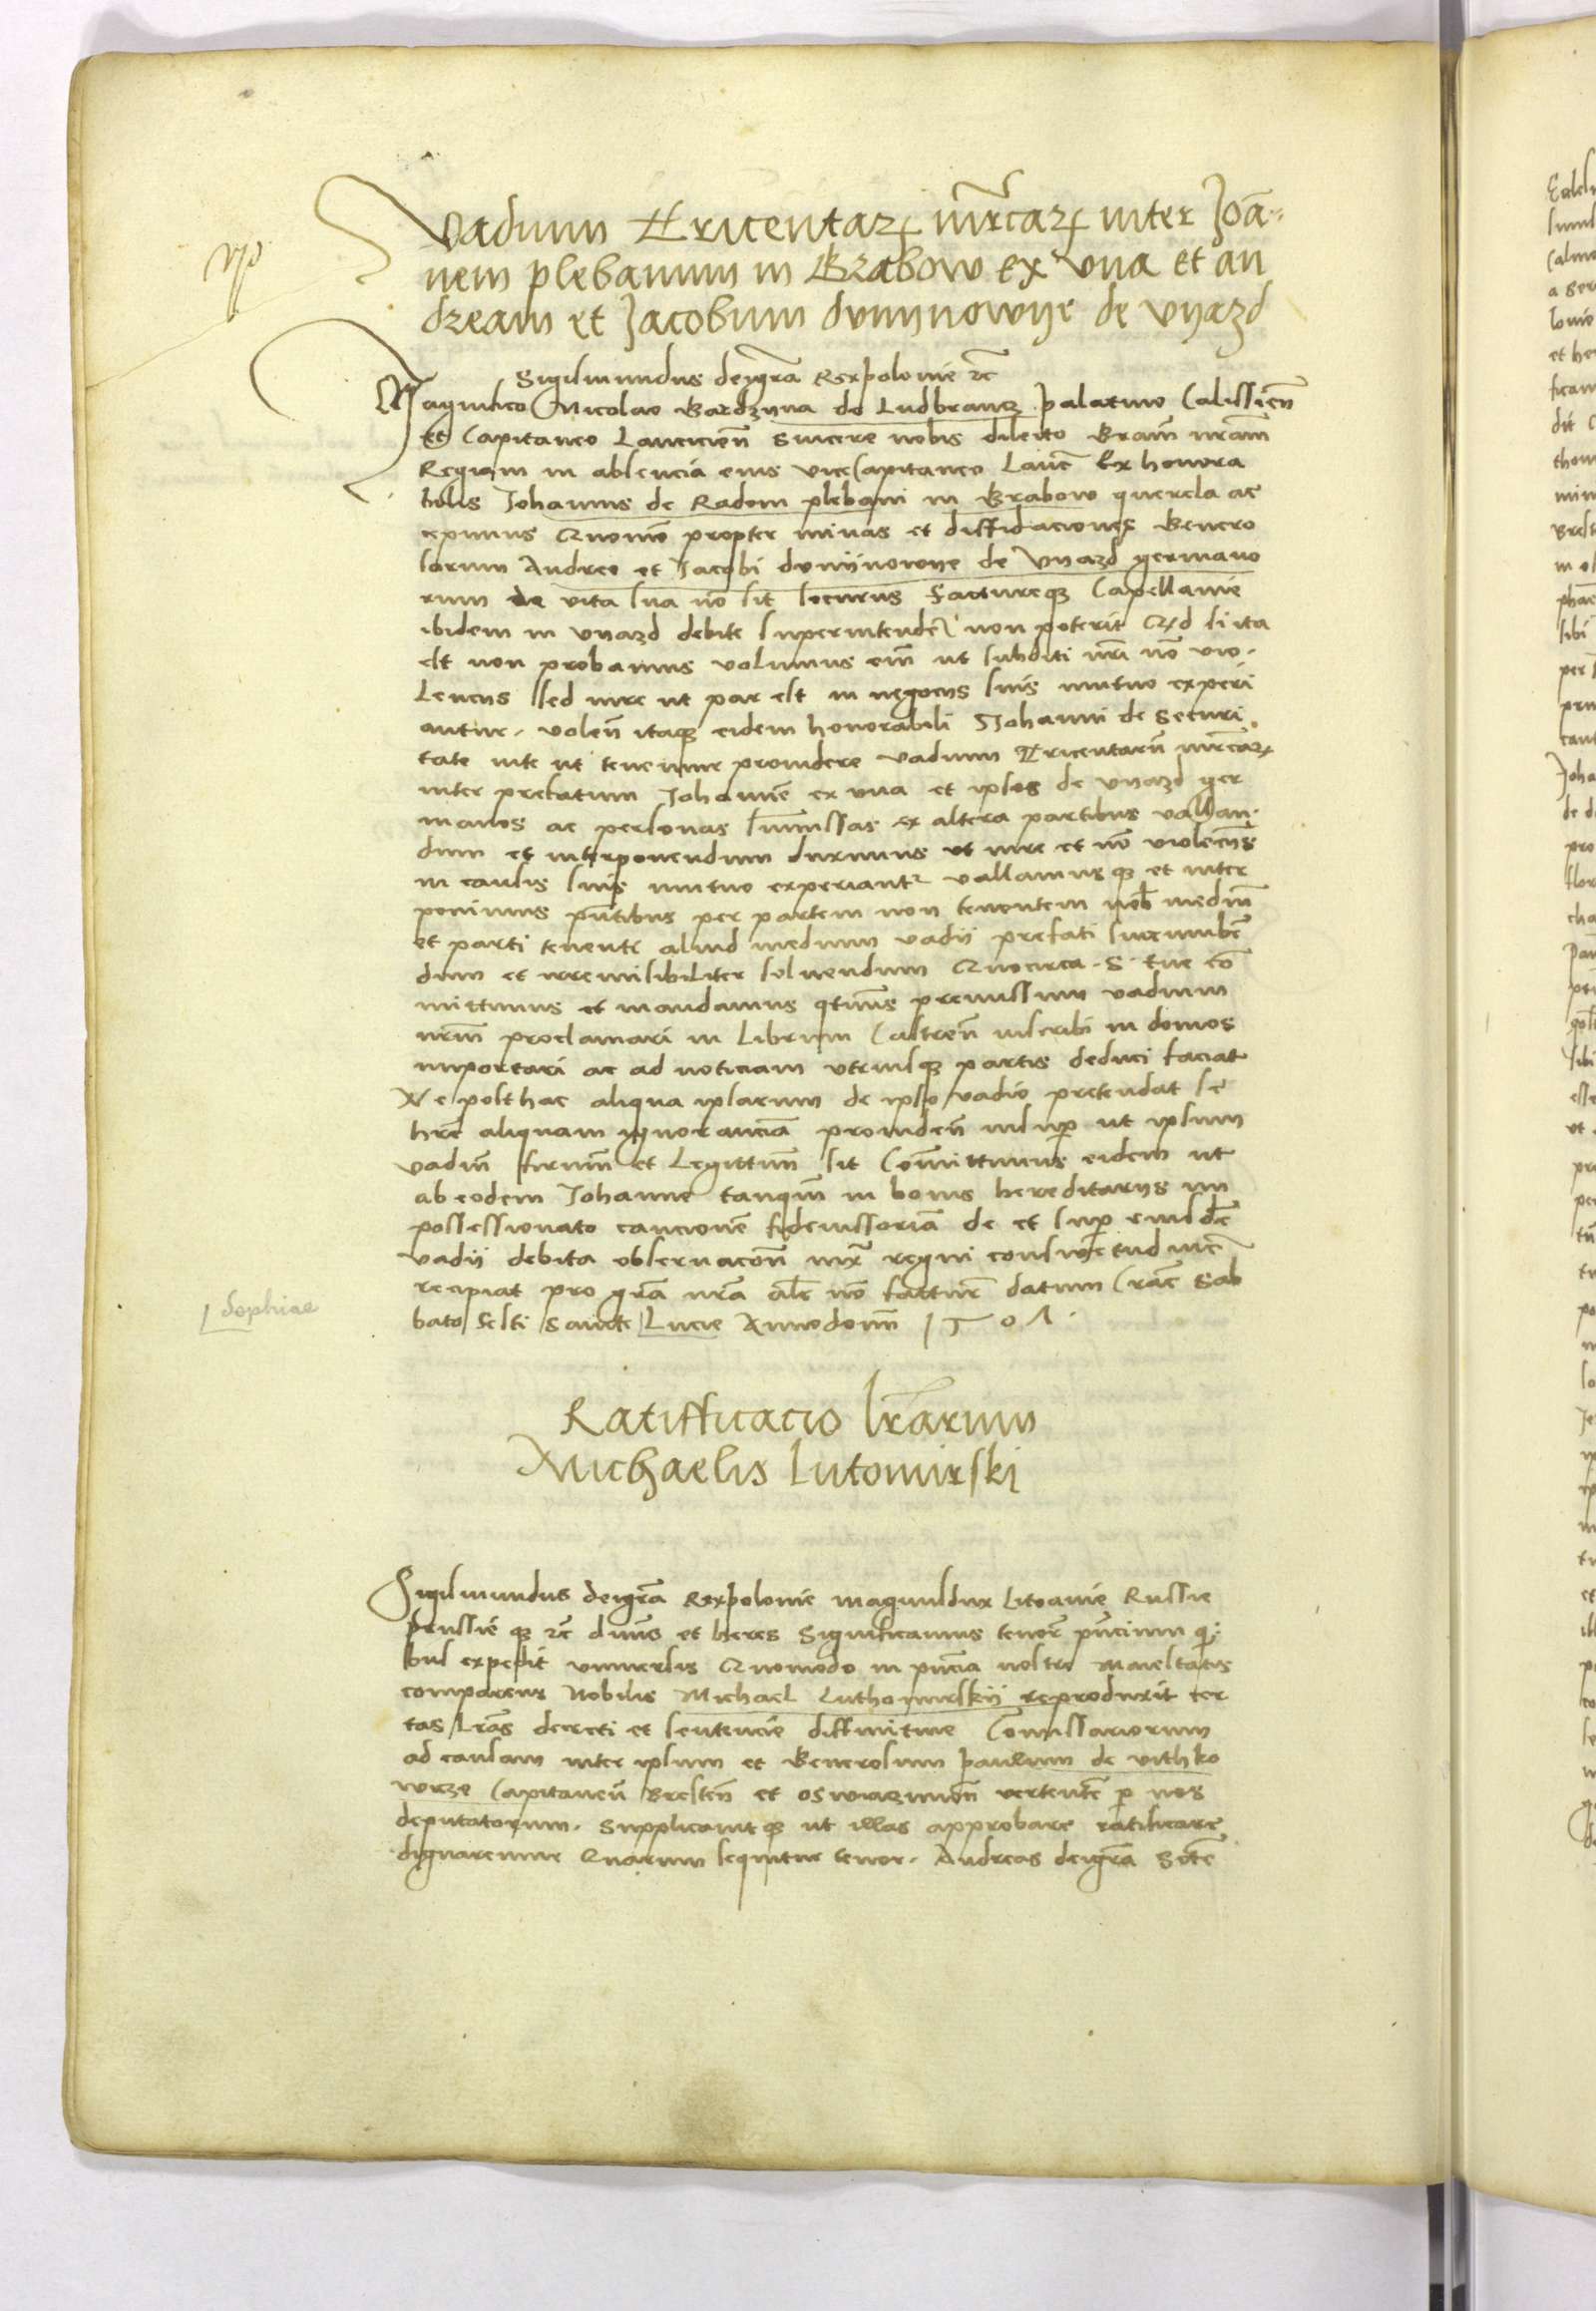 Vadium Tricentaꝝ mr̃caꝝ inter Joã=
nem plebanum in Grabow ex vna et an
dream et Jacobum dvnÿnowÿe de Vyazd
Sigismundus dei gr̃a Rex polonie ⁊c̃
Magnifico Nicolao Gardzyna de Ludbrancz palatino Calissien̄
et Capitaneo Lancicien̄ Sincere nobis dilecto Gram̄ nr̃am
Regiam in absencia eius viceCapitaneo Lanc̃ Ex honora
bilis Johannis de Radom plebani in Grabow querela ac
cepimus Quomo propter minas et diffidaciones Genero
sorum Andree et Jacobi dvnÿnowye de Vyazd germano
rum de vita sua nō sit securus factureqꝫ Capellanie
ibidem in vyazd debite superintender̃ non poterit Qd̃ si ita
est non probamus volumus em̄ ut subditi nr̃i nō vio-
lencys sed iure ut par est in negocys suis mutuo experi
antur. volen̄ itaqꝫ eidem honorabili Johanni de securi
tate vite ut tenemur prouidere vadium Tricentarū mr̃caꝝ
inter prefatum Johannē ex vna et ipsos de vyazd ger
manos ac personas summissas ex altera partibus vallan-
dum et interponendum duximus ut iure et nō violencys
in causis suis mutuo experiantʳ vallamusqꝫ et inter
ponimus pn̄tibus per partem non tenentem nob̄ mediū
et parti tenenti aliud medium vadii prefati succumbē
dum et irremisibiliter soluendum Quocirca. S. tue cō
mittimus et mandamus qtin̄us premissum vadium
nr̃m proclamari in Librum Castren̄ inscribi in domos
importari ac ad noticiam vtriusqꝫ partis deduci faciat
Ne posthac aliqua ipsarum de ipso vadio pretendat se
hr̃e aliquam ignoranciā prouiden̄ insup̄ ut ipsum
vadiū firmū et Legittimū sit Com̄ittimus eidem ut
ab eodem Johanne tanqm̄ in bonis hereditarys im
possessionato caucionē fideiussoriā de et sup̄ eiusdē
vadii debita obseruacon̄ iux̄ regni consuetudinē
recipiat pro gr̃a nr̃a al̄r nō factur̃ datum Crac̄ Sab
bato festi Sancte Lucie Anno domī 150Λ.
[Sophiae
Ratifficacio lr̃arum
Michaelis Lutomirski
Sigismundus dei gr̃a Rex polonie magnusdux Litoanie Russie
prussieqꝫ ⁊c̃ dn̄us et heres Significamus tenor̃ pn̄cium qi:
bus expedit vniuersis Quomodo in pn̄cia nostre Maiestatis
comparens Nobilis Michael Luthomirskij reproduxit cer
tas Lr̃as decreti et sentencie diffinitiue Comissariorum
ad causam inter ipsum et Generosum paulum de vithko
wicze Capitaneū Bresten̄ et oswiaczimen̄ vertentē p̄ nos
deputatorum. Supplicauitqꝫ ut illas approbare ratificare
dignaremur Quarum sequitur tenor. Andreas dei gr̃a Sctē